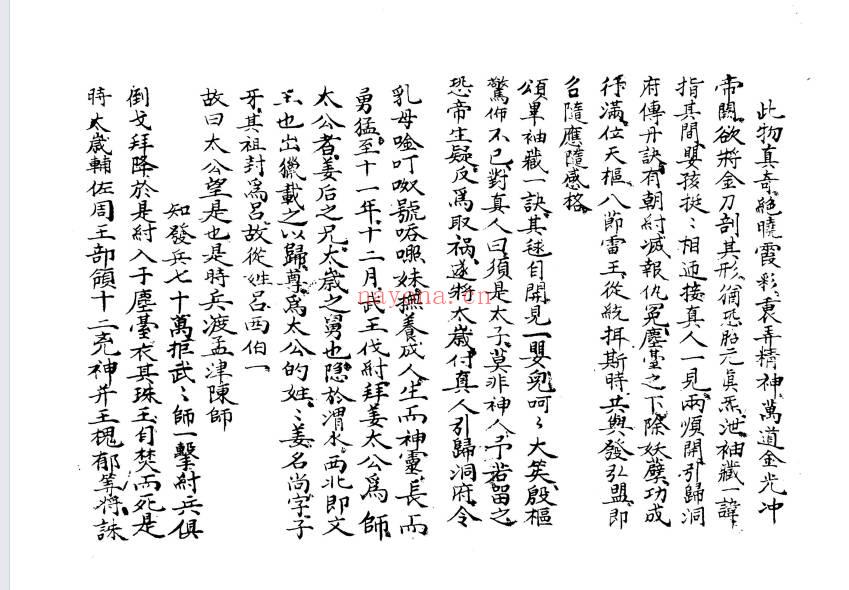 此物真奇絕曉霞彩裏弄精神萬道金光冲
帝闕欲將金刀剖其形猶恐胎元真炁泄袖藏一諱
指其間嬰孩挺〻相迊接真人一見兩煩開引歸洞
府傳丹訣有朝紂滅報仇冤塵臺之下除妖孽功成
行滿位天樞八節雷王從統揖斯時共與發弘盟即
召隨應隨感格
頌畢袖藏一訣其毬自開見一嬰兒呵〻大笑殷樞
驚怖不已對真人曰須是太子莫非神人予若留之
恐帝生疑反為取禍遂將太歲付真人引歸洞府令
乳母唫叮呶號𠴨㗻妹撫養成人生而神靈長而
勇猛至十一年十二月武王伐紂拜姜太公為師
太公者姜后之兄太歲之舅也隱於渭水西北即文
王也出獵載之以歸尊為太公的姓〻姜名尚字子
牙其祖封為呂故從姓呂西伯一
故曰太公望是也是時兵渡孟津陳師
知發兵七十萬拒武〻師一擊紂兵俱
倒戈拜降於是紂入于塵臺衣其珠玉自焚而死是
時太歲輔佐周王部領十二亮神并王槐郁等將誅
nayona.cn